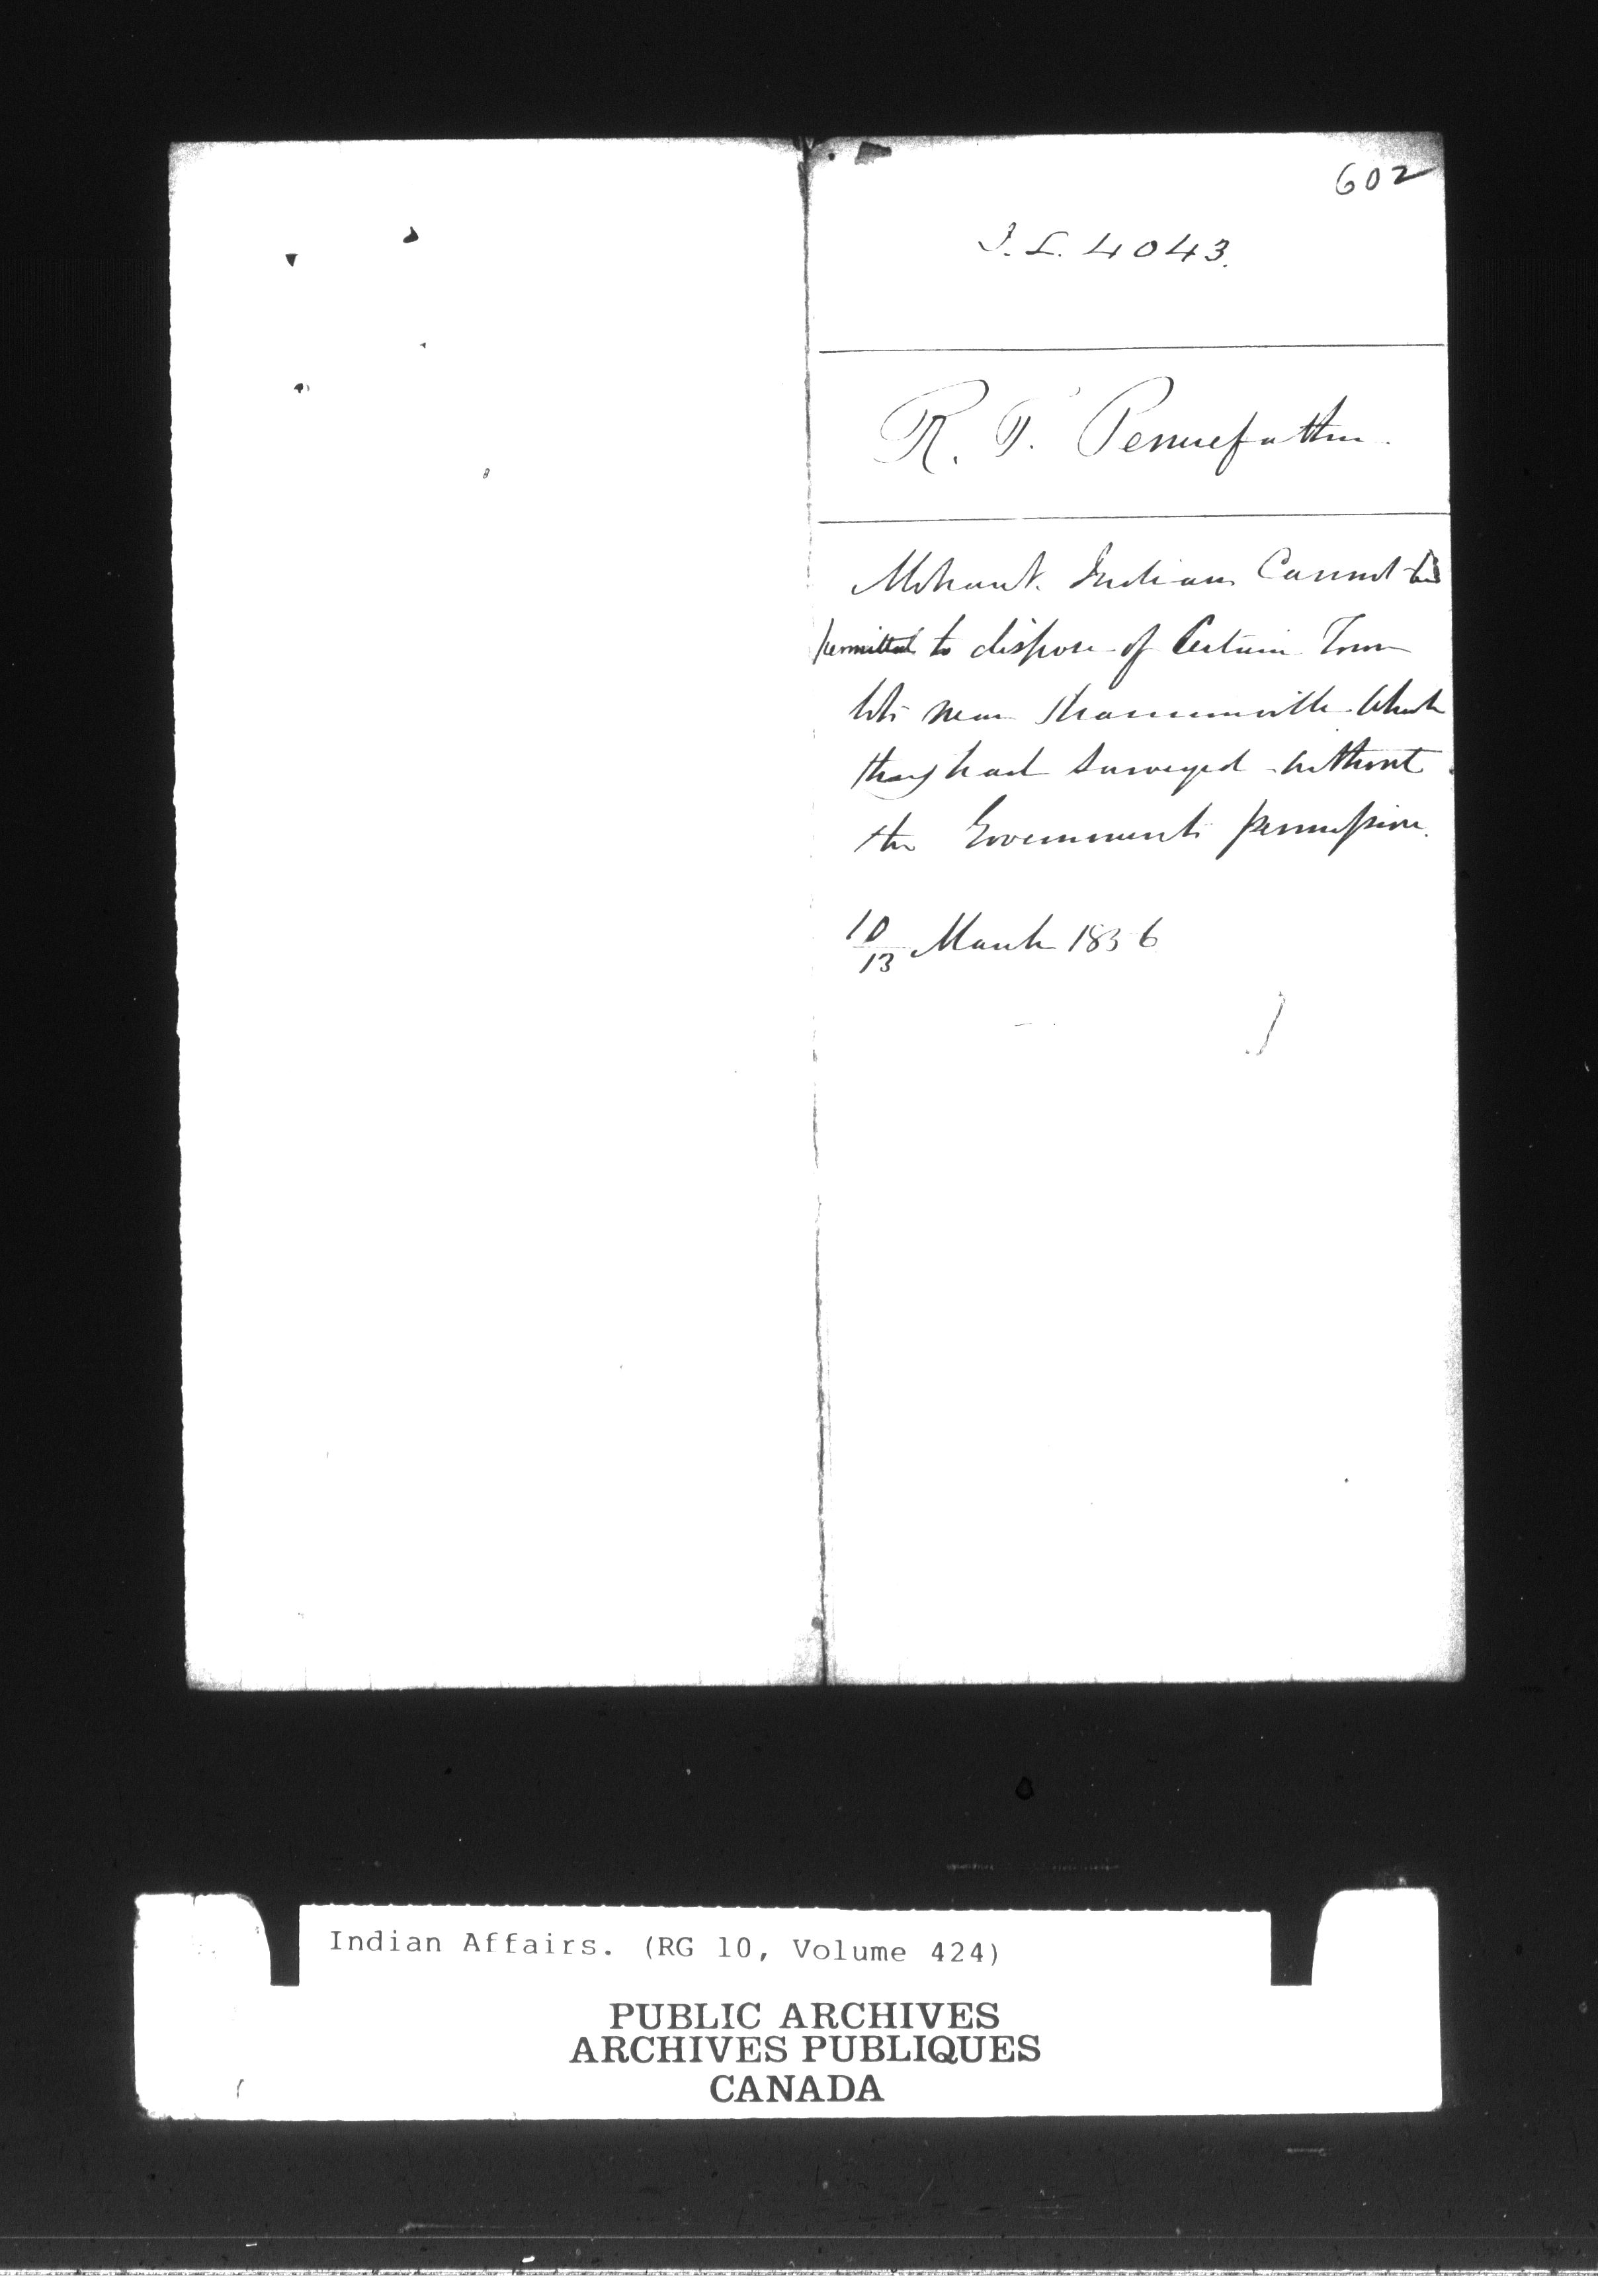 602
I. L. 4043.
R. T. Pennefather.
Mohawk Indians Cannot be
permitted to dispose of Certain Town
lots near Shannonville which
they had surveyed without
the Governments permission.
10/13 March 1856
Indian Affairs. (RG 10, Volume 424)
PUBLIC ARCHIVES
ARCHIVES PUBLIQUES
CANADA